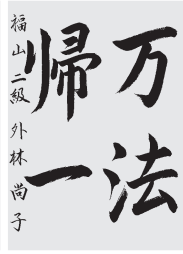 万法
帰一
福山 二級 外林尚子